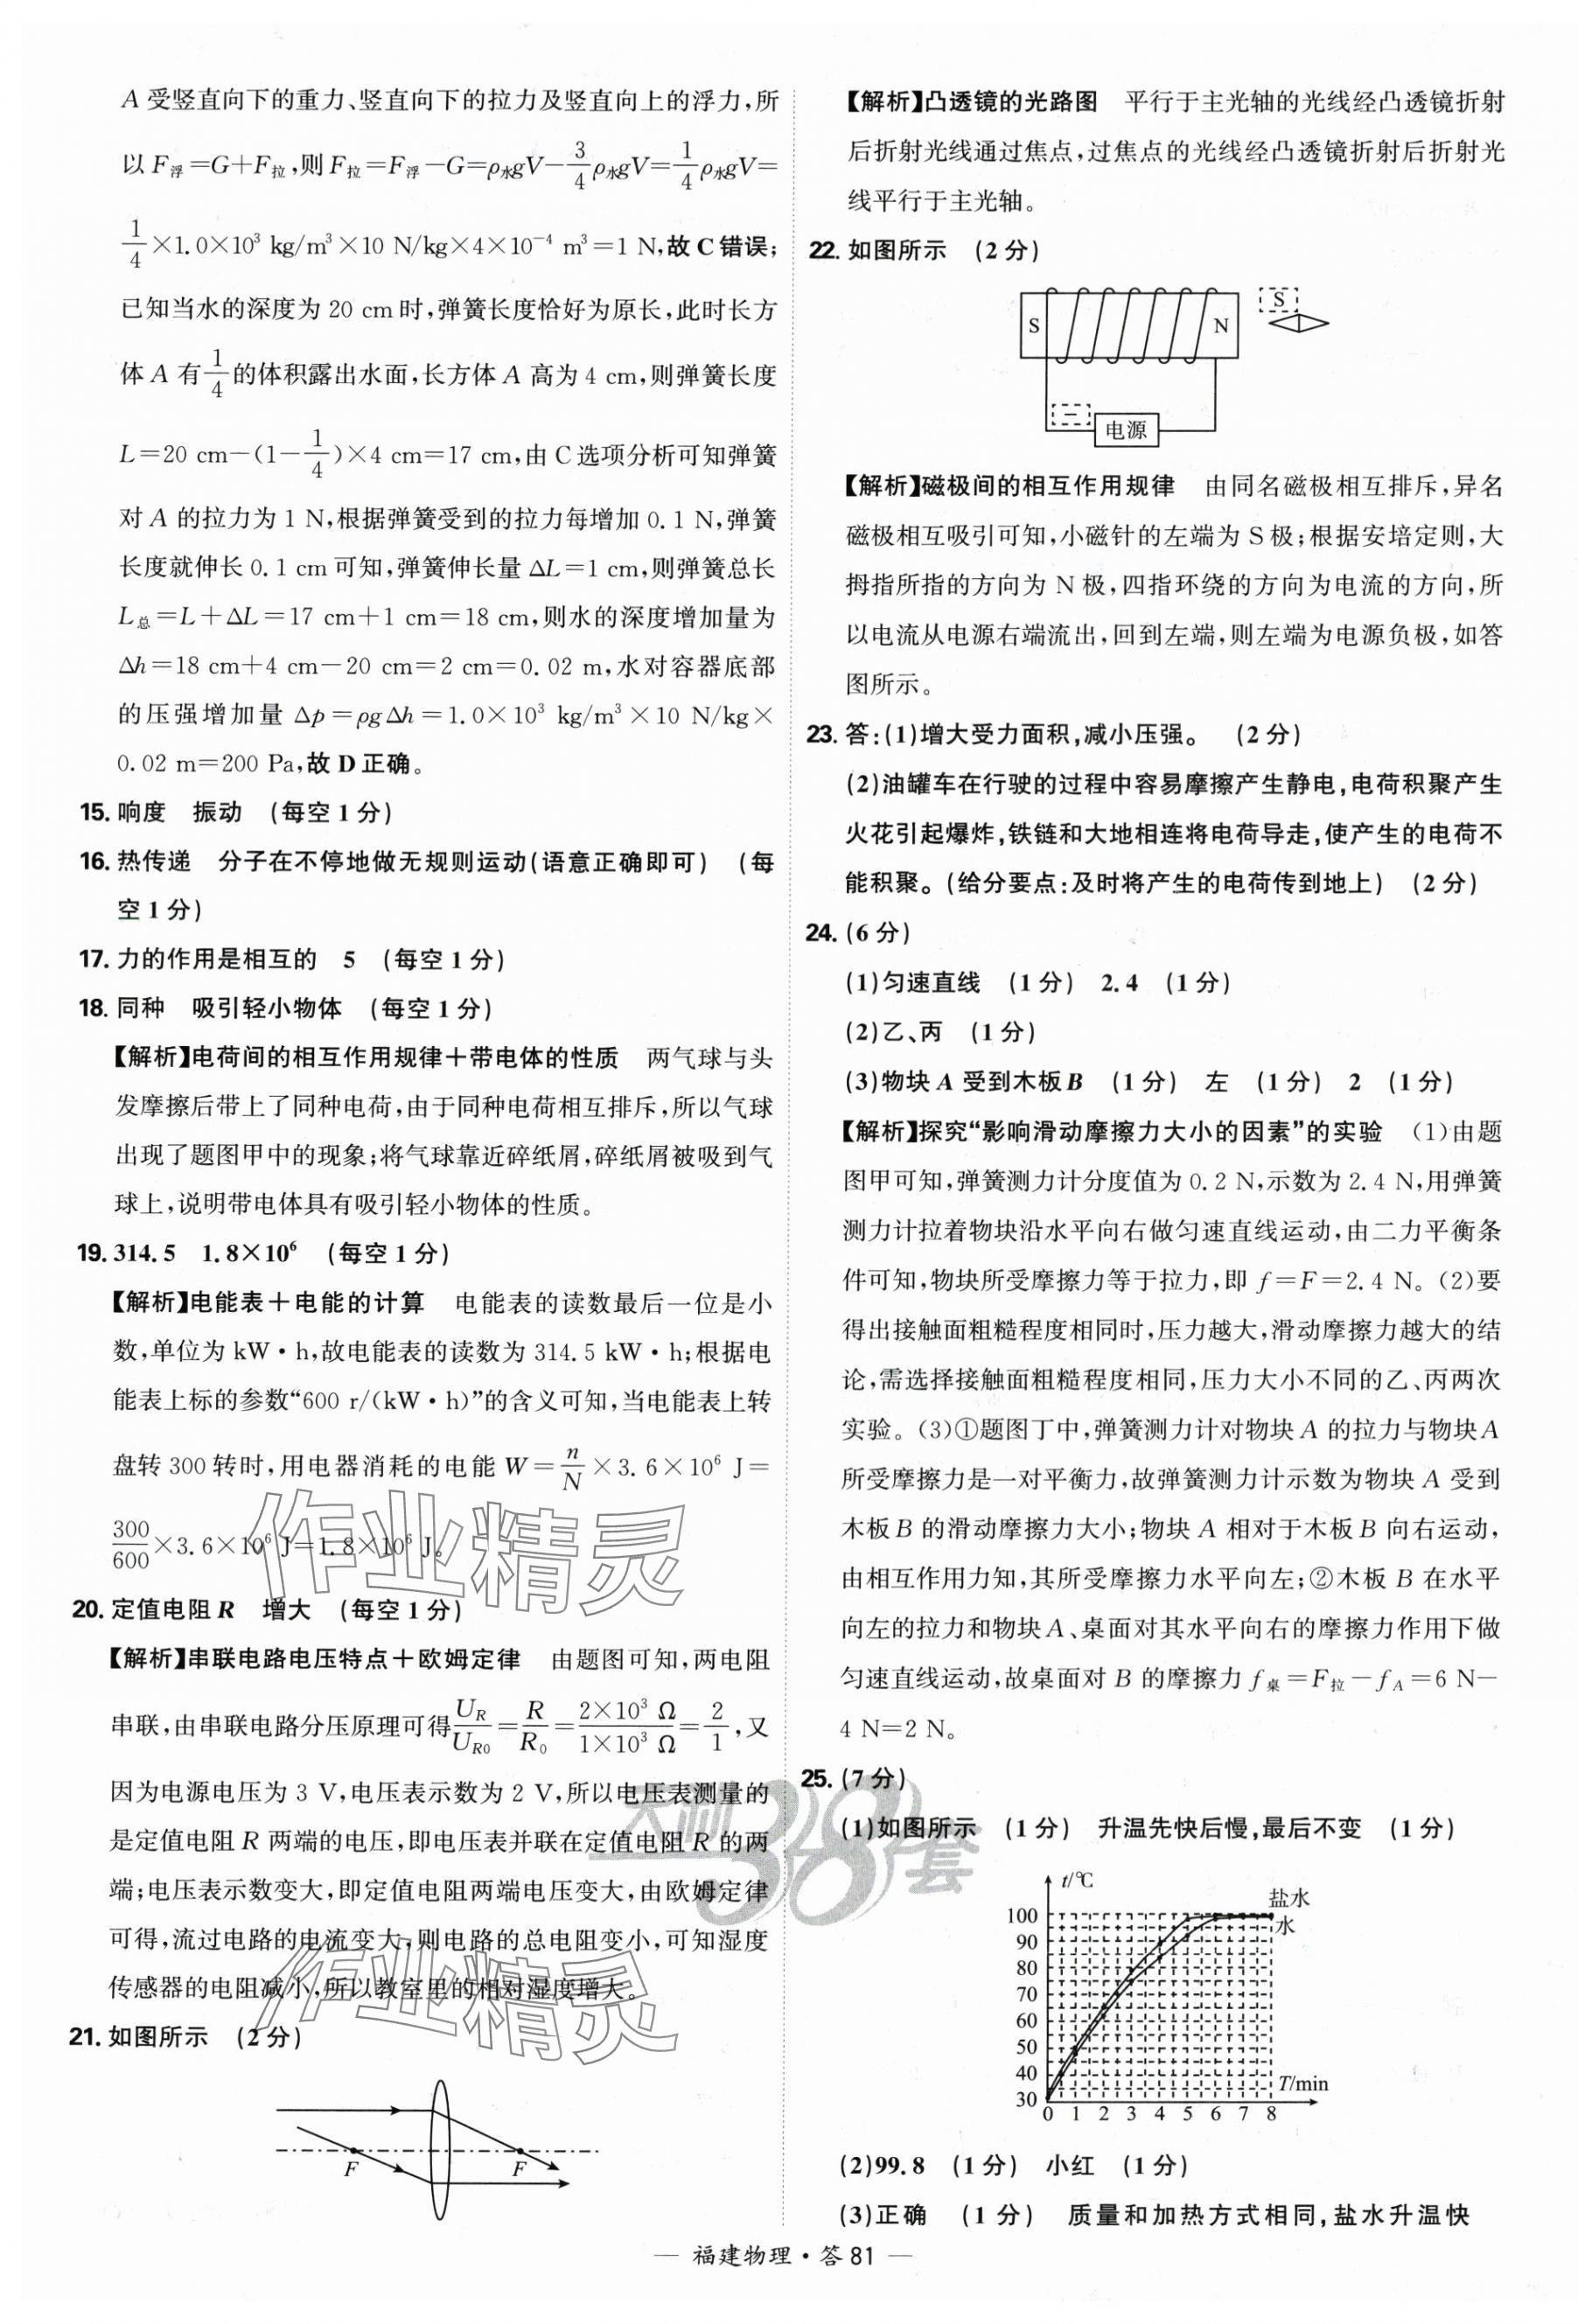 A 受竖直向下的重力、竖直向下的拉力及竖直向上的浮力,所
以 F浮=G+F拉,则 F拉=F浮-G=ρ水gV-3/4ρ水gV=1/4ρ水gV=
1/4×1.0×10³ kg/m³×10 N/kg×4×10⁻⁴ m³=1 N,故 C 错误;
已知当水的深度为 20 cm 时,弹簧长度恰好为原长,此时长方
体 A 有1/4的体积露出水面,长方体 A 高为 4 cm,则弹簧长度
L=20 cm-(1-1/4)×4 cm=17 cm,由 C 选项分析可知弹簧
对 A 的拉力为 1 N,根据弹簧受到的拉力每增加 0.1 N,弹簧
长度就伸长 0.1 cm 可知,弹簧伸长量 ΔL=1 cm,则弹簧总长
L总=L+ΔL=17 cm+1 cm=18 cm,则水的深度增加量为
Δh=18 cm+4 cm-20 cm=2 cm=0.02 m,水对容器底部
的压强增加量 Δp=ρgΔh=1.0×10³ kg/m³×10 N/kg×
0.02 m=200 Pa,故 D 正确。
15. 响度 振动 (每空 1 分)
16. 热传递 分子在不停地做无规则运动(语意正确即可) (每
空 1 分)
17. 力的作用是相互的 5 (每空 1 分)
18. 同种 吸引轻小物体 (每空 1 分)
【解析】电荷间的相互作用规律+带电体的性质 两气球与头
发摩擦后带上了同种电荷,由于同种电荷相互排斥,所以气球
出现了题图甲中的现象;将气球靠近碎纸屑,碎纸屑被吸到气
球上,说明带电体具有吸引轻小物体的性质。
19. 314.5 1.8×10⁶ (每空 1 分)
【解析】电能表+电能的计算 电能表的读数最后一位是小
数,单位为 kW·h,故电能表的读数为 314.5 kW·h;根据电
能表上标的参数“600 r/(kW·h)”的含义可知,当电能表上转
盘转 300 转时,用电器消耗的电能 W=n/N×3.6×10⁶ J=
300/600×3.6×10⁶ J=1.8×10⁶ J。
20. 定值电阻 R 增大 (每空 1 分)
【解析】串联电路电压特点+欧姆定律 由题图可知,两电阻
串联,由串联电路分压原理可得UR/UR0=R/R0=2×10³ Ω/1×10³ Ω=2/1,又
因为电源电压为 3 V,电压表示数为 2 V,所以电压表测量的
是定值电阻 R 两端的电压,即电压表并联在定值电阻 R 的两
端;电压表示数变大,即定值电阻两端电压变大,由欧姆定律
可得,流过电路的电流变大,则电路的总电阻变小,可知湿度
传感器的电阻减小,所以教室里的相对湿度增大。
21. 如图所示 (2 分)
F
F
【解析】凸透镜的光路图 平行于主光轴的光线经凸透镜折射
后折射光线通过焦点,过焦点的光线经凸透镜折射后折射光
线平行于主光轴。
22. 如图所示 (2 分)
S
N
S
-
电源
【解析】磁极间的相互作用规律 由同名磁极相互排斥,异名
磁极相互吸引可知,小磁针的左端为 S 极;根据安培定则,大
拇指所指的方向为 N 极,四指环绕的方向为电流的方向,所
以电流从电源右端流出,回到左端,则左端为电源负极,如答
图所示。
23. 答:(1)增大受力面积,减小压强。 (2 分)
(2)油罐车在行驶的过程中容易摩擦产生静电,电荷积聚产生
火花引起爆炸,铁链和大地相连将电荷导走,使产生的电荷不
能积聚。(给分要点:及时将产生的电荷传到地上) (2 分)
24. (6 分)
(1)匀速直线 (1 分) 2.4 (1 分)
(2)乙、丙 (1 分)
(3)物块 A 受到木板 B (1 分) 左 (1 分) 2 (1 分)
【解析】探究“影响滑动摩擦力大小的因素”的实验 (1)由题
图甲可知,弹簧测力计分度值为 0.2 N,示数为 2.4 N,用弹簧
测力计拉着物块沿水平向右做匀速直线运动,由二力平衡条
件可知,物块所受摩擦力等于拉力,即 f=F=2.4 N。(2)要
得出接触面粗糙程度相同时,压力越大,滑动摩擦力越大的结
论,需选择接触面粗糙程度相同,压力大小不同的乙、丙两次
实验。(3)①题图丁中,弹簧测力计对物块 A 的拉力与物块 A
所受摩擦力是一对平衡力,故弹簧测力计示数为物块 A 受到
木板 B 的滑动摩擦力大小;物块 A 相对于木板 B 向右运动,
由相互作用力知,其所受摩擦力水平向左;②木板 B 在水平
向左的拉力和物块 A、桌面对其水平向右的摩擦力作用下做
匀速直线运动,故桌面对 B 的摩擦力 f桌=F拉-fA=6 N-
4 N=2 N。
25. (7 分)
(1)如图所示 (1 分) 升温先快后慢,最后不变 (1 分)
t/℃
盐水
水
100
90
80
70
60
50
40
30
T/min
0 1 2 3 4 5 6 7 8
(2)99.8 (1 分) 小红 (1 分)
(3)正确 (1 分) 质量和加热方式相同,盐水升温快
— 福建物理·答 81 —
作业精灵
作业精灵
天利38套